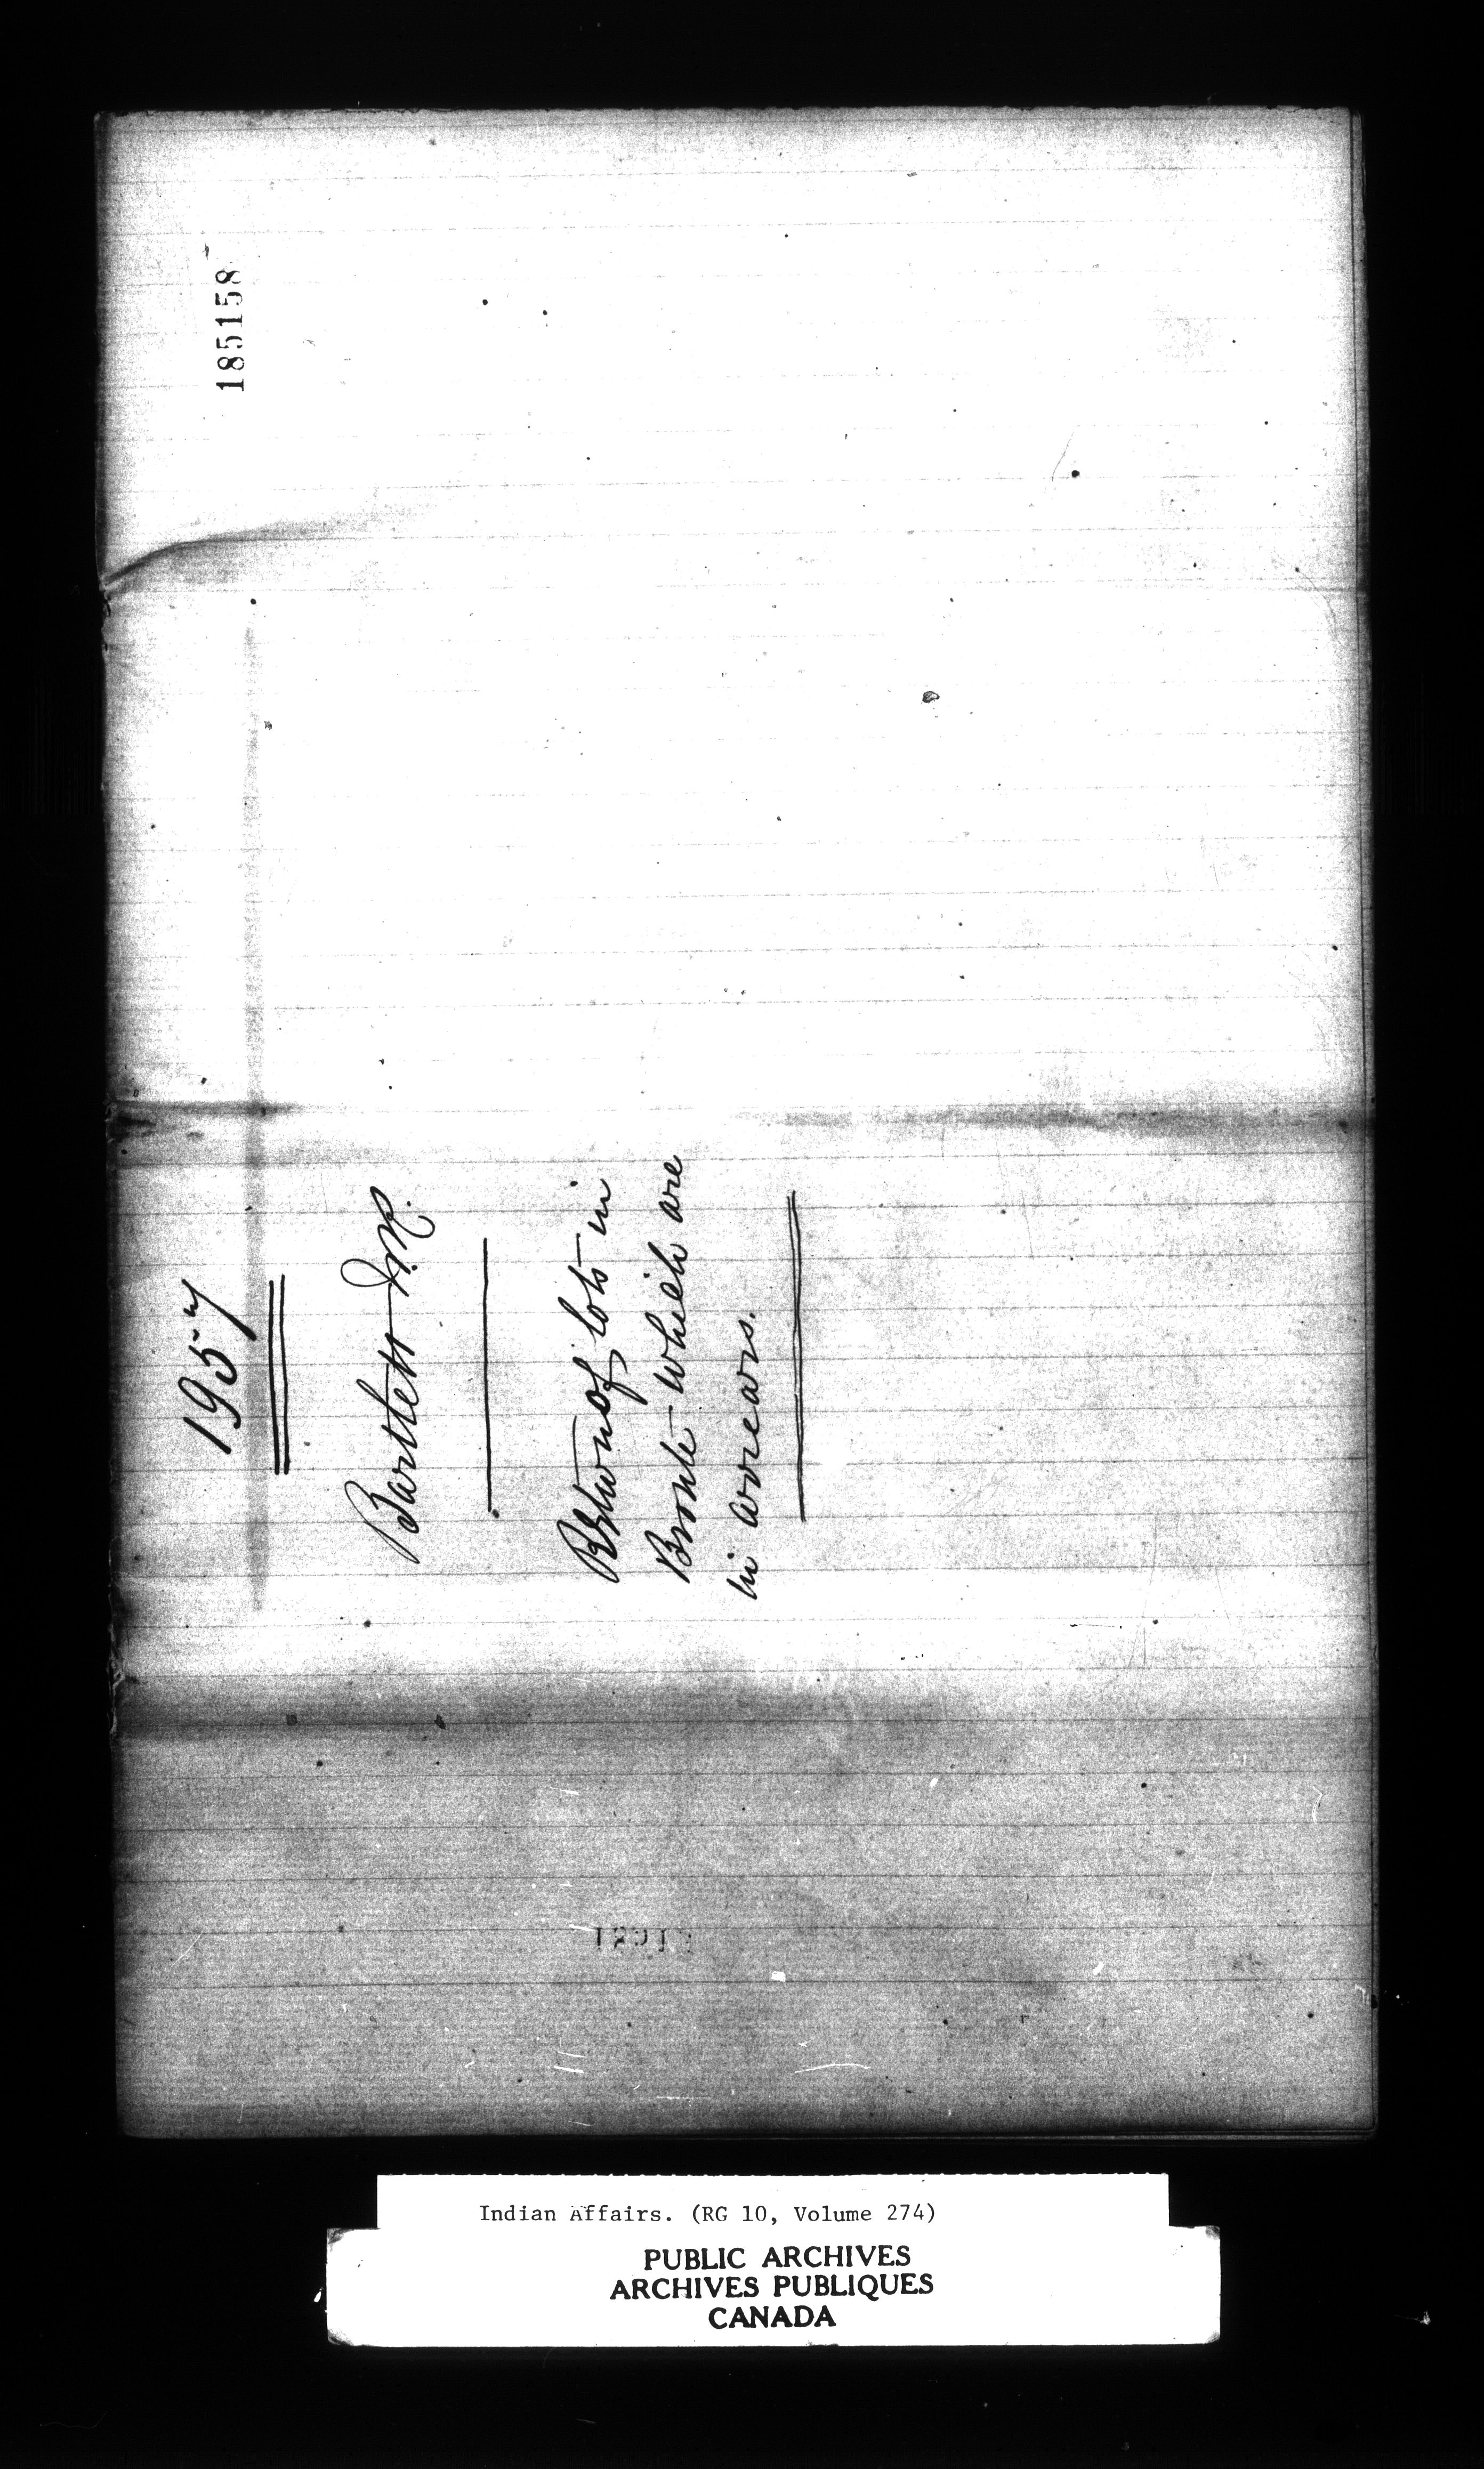 185158
1957
Bartlett W.R.
Return of lots in
Bronte which are
in arrears.
Indian Affairs. (RG 10, Volume 274)
PUBLIC ARCHIVES
ARCHIVES PUBLIQUES
CANADA